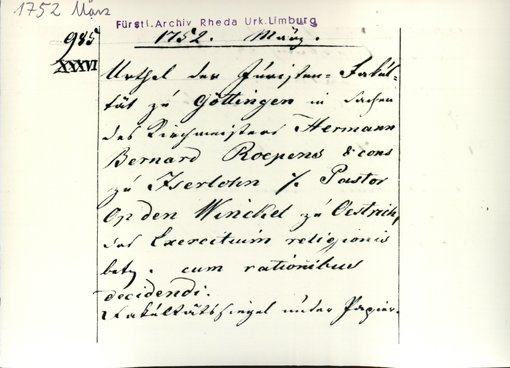 1752 März
Fürstl. Archiv Rheda Urk. Limburg
985 1752. März.
XXXVI
Urthel der Juristen-Fakul-
tät zu Göttingen in Sachen
des Kirchmeisters Hermann
Bernard Roepens & cons
zu Iserlohn ./. Pastor
Op den Winckel zu Oestrich,
das Exercitium religionis
betr. cum rationibus
decidendi.
Fakultätssiegel unter Papier.